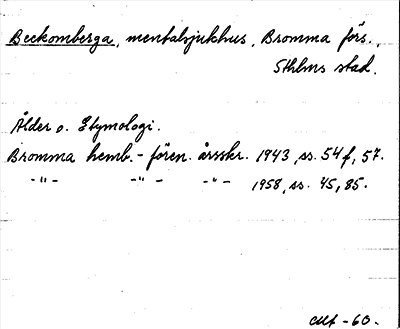 Beckomberga, mentalsjukhus, Bromma förs.,
Sthlms stad.
Ålder o. Etymologi.
Bromma hemb.-fören. årsskr. 1943, ss. 54 f, 57.
-"- -"- -"- 1958, ss. 45, 85.
-60.